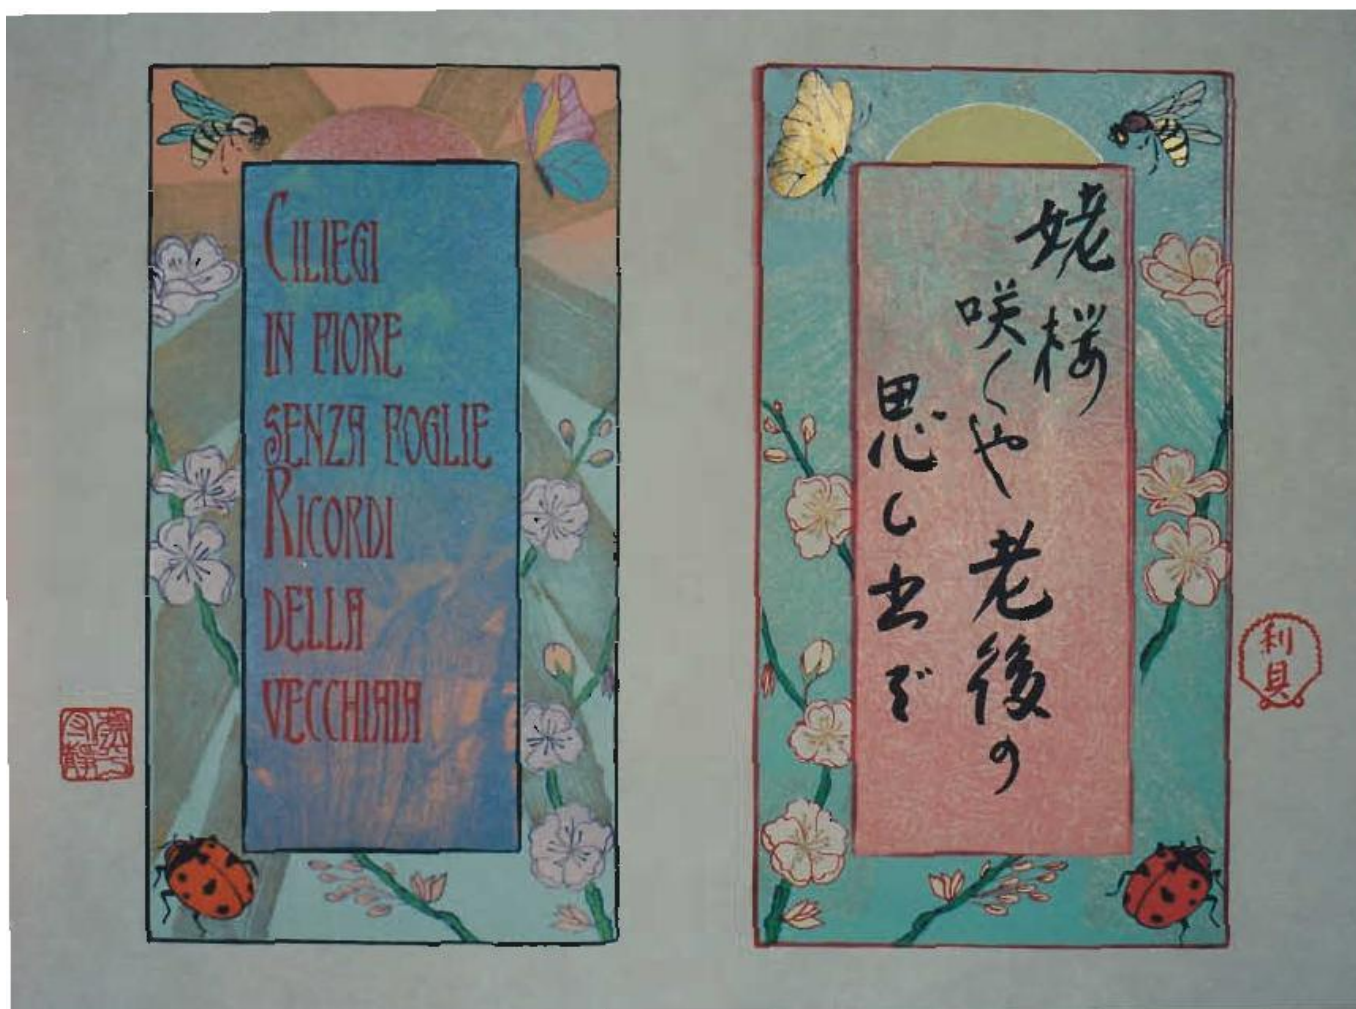 CILIEGI
IN FIORE
SENZA FOGLIE
RICORDI
DELLA
VECCHIAIA
姥桜
咲くや老後の
思ひ出
利貝